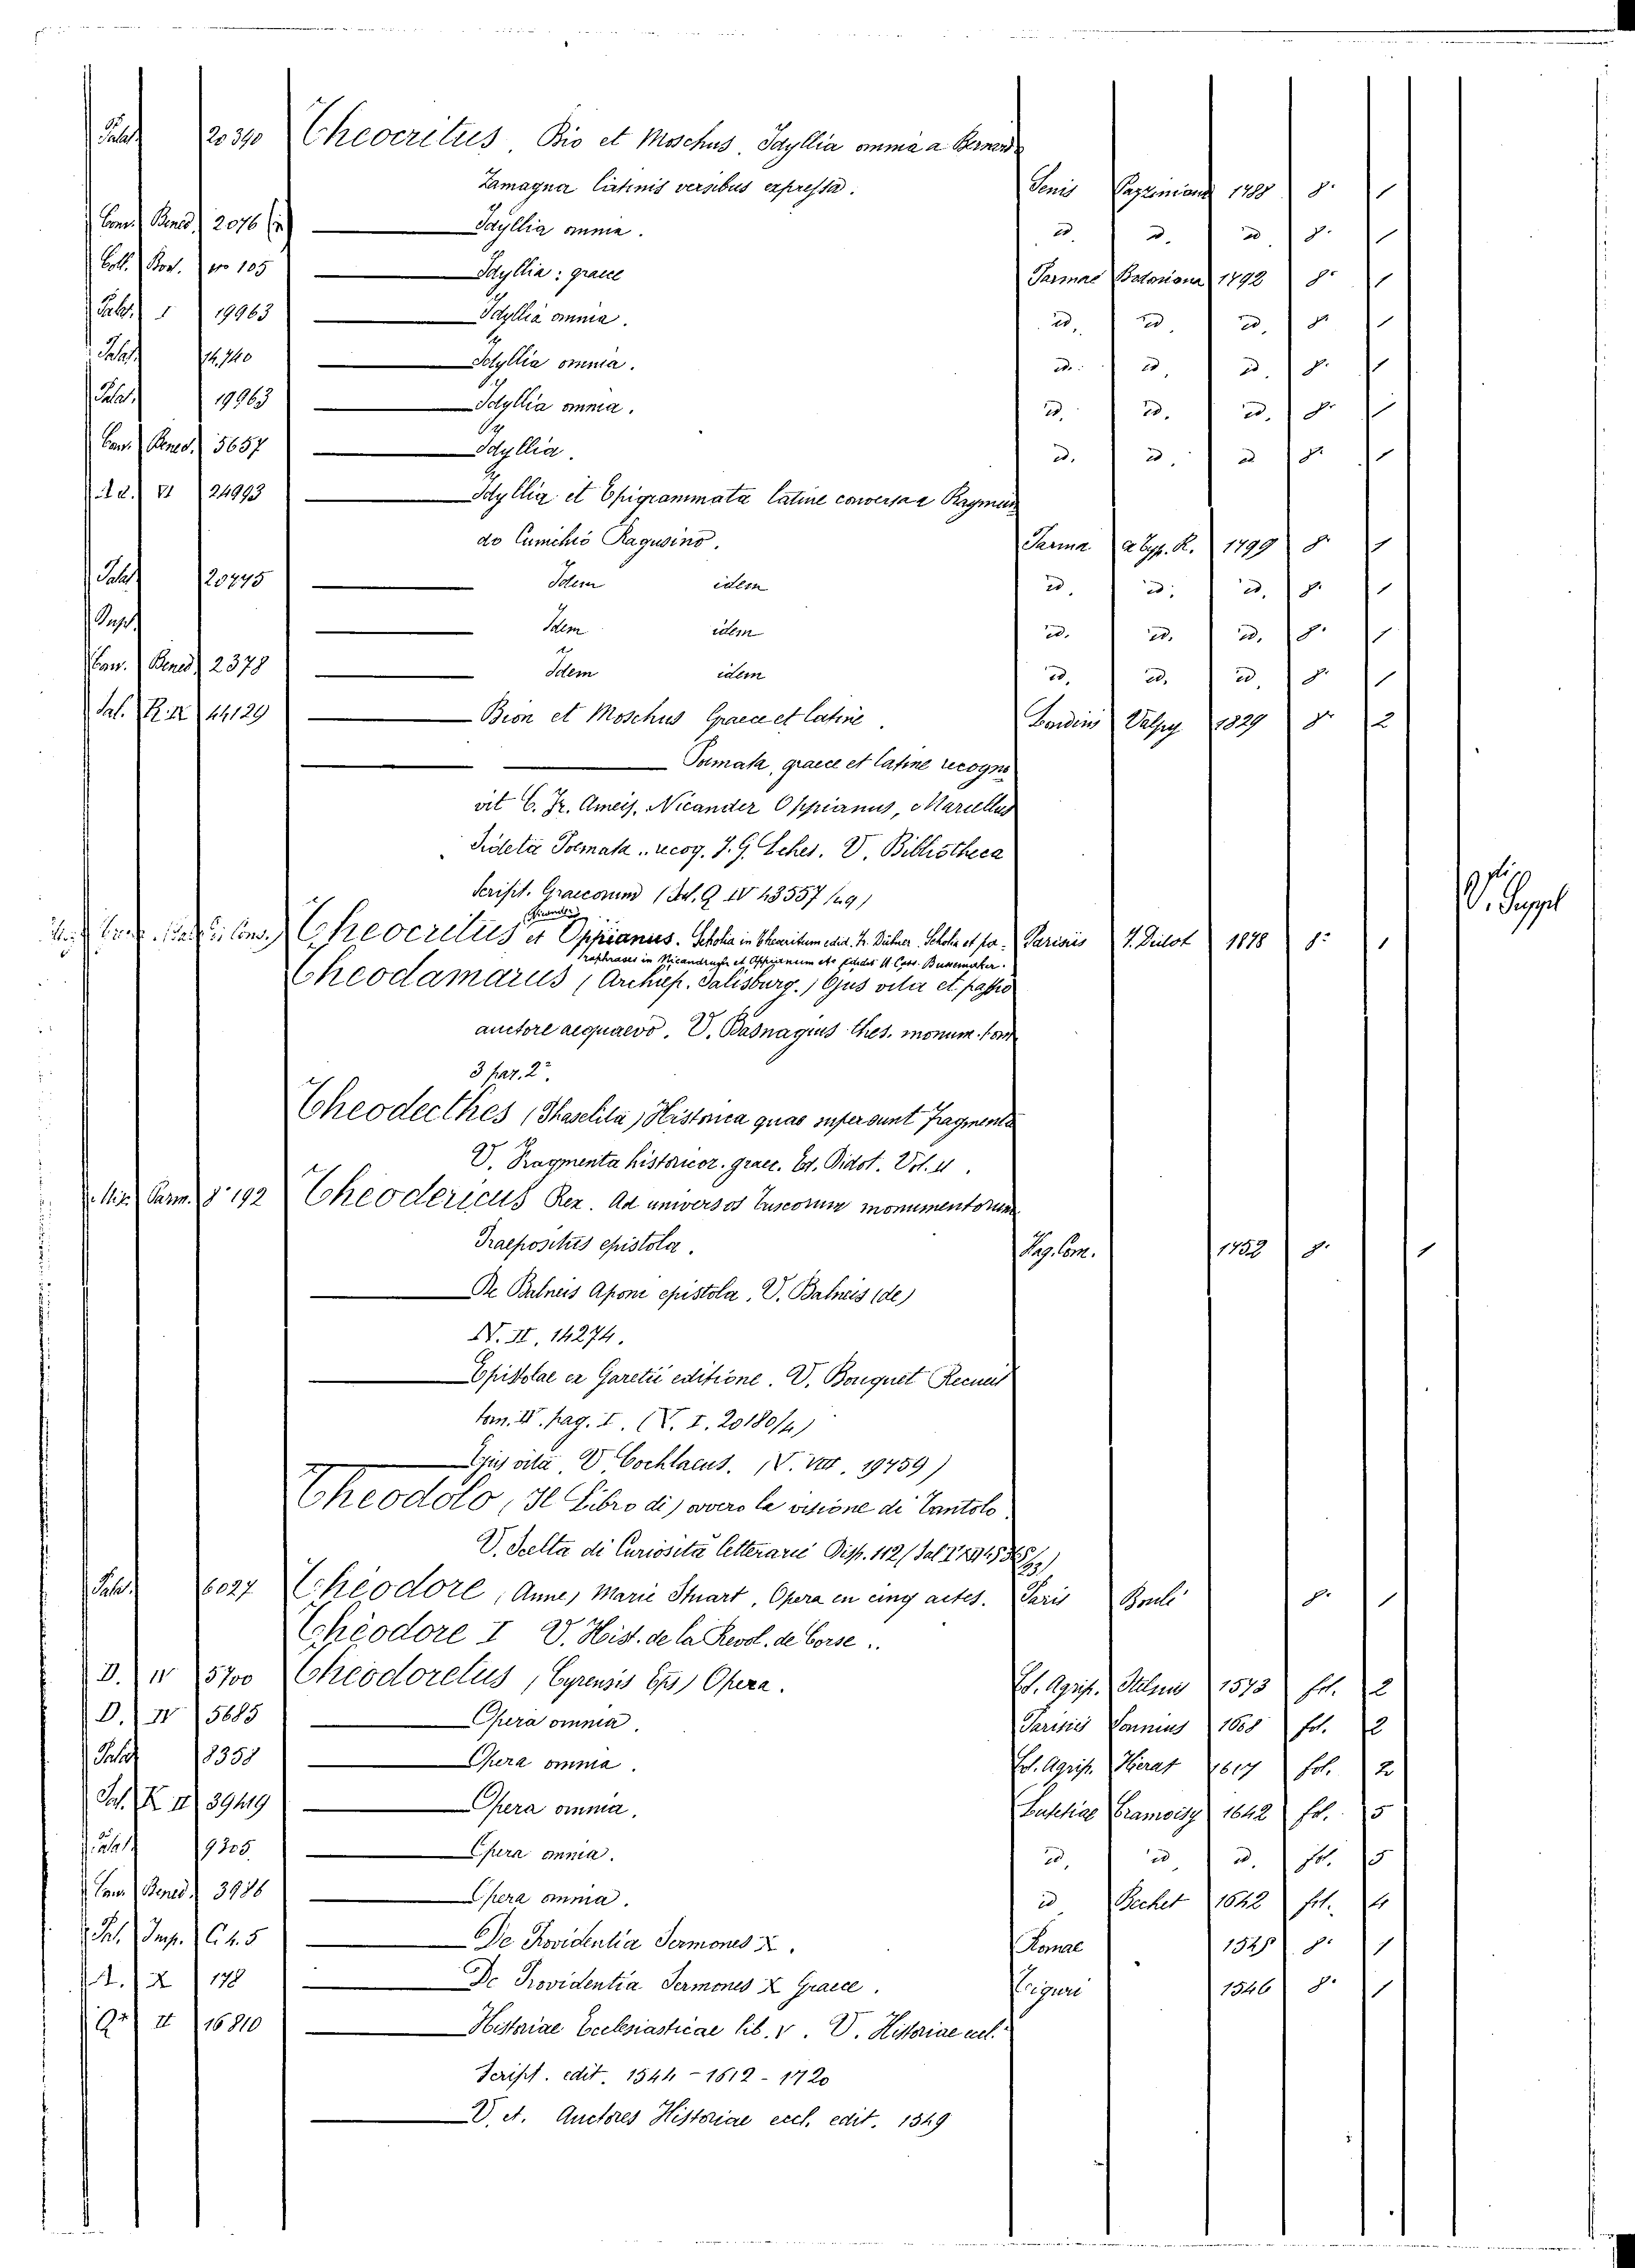 Palat. 20390 Theocritus, Bio et Moschus, Idyllia omnia a Bernardo
Zamagna latinis versibus expressa. Senis Pazziniana 1788 8° 1
Conv. Bened. 2076 Idyllia omnia. id. id. id. 8° 1
Coll. Bod. no 105 Idyllia: graece Parmae Bodoniana 1792 8° 1
Palat. 19963 Idyllia omnia. id. id. id. 8° 1
Palat. 14,740 Idyllia omnia. id. id. id. 8° 1
Palat. 19963 Idyllia omnia. id. id. id. 8° 1
Conv. Bened. 5657 Idyllia. id. id. id 8° 1
VI 24993 Idyllia et Epigrammata latine conversa a Raymun
do Cunichio Ragusino. Parma a Typ. R. 1799 8° 1
Palat. 20775 Idem idem id. id. id. 8° 1
Idem idem id. id. id. 8° 1
Conv. Bened. 2378 Idem idem id. id. id. 8° 1
Sal. 44129 Bion et Moschus Graece et latine. Londini Valpy 1829 8° 2
Poemata, graece et latine recogno
vit C. Fr. Ameis, Nicander Oppianus, Marcellus
Sideta Poemata, recog. F. G. Lehrs. V. Bibliotheca
Script. Graecorum (Sal. Q IV 43557/49)
V. Suppl
(Nicander)
Theocritus et Oppianus. Scholia in Theocritum edid. Fr. Dübner. Scholia et pa- Parisiis F. Didot 1878 8° 1
raphrases in Nicandrum et Oppianum etc edidit U. Cats. Bussemaker.
Theodamarus (Archiep. Salisburg.) Ejus vita et passio
auctore aequaevo. V. Basnagius Thes. monum. tom
3 par. 2ª.
Theodecthes (Phaselita) Historica quae supersunt Fragmenta
V. Fragmenta historicor. graec. Ed. Didot. Vol. 4.
Parm. 8° 192 Theodericus Rex. Ad universos Tuscorum monumentorum
Praepositus epistola. Pag. Com. 1752 8° 1
De Balneis Aponi epistola. V. Balneis (de)
N. II, 14274.
Epistolae ex Garetii editione. V. Bouquet Recueil
tom. IV. pag. I. (V. I. 20180/4)
Ejus vita. V. Cochlaeus. (V. VIII. 19759)
Theodolo (Il Libro di) ovvero la visione di Tantolo.
V. Scelta di Curiosità letterarie Disp. 112
Palat. 6027 Théodore, Anne, Marie Stuart, Opera en cinq actes. Paris Boulé 8° 1
Théodore I V. Hist. de la Revol. de Corse..
D. IV 5700 Theodoretus, (Cyrensis Eps) Opera. Col. Agrip. 1573 fol. 2
D. IV 5685 Opera omnia. Parisiis Sonnius 1608 fol. 2
Palat. 8358 Opera omnia. Col. Agrip. Hierat 1617 fol. 2
Sal. K II 39419 Opera omnia. Lutetiae Cramoisy 1642 fol. 5
Palat. 9305 Opera omnia. id. id. id. fol. 5
Conv. Bened. 3986 Opera omnia. id. Bechet 1642 fol. 4
Pal. Imp. C. 4. 5 De Providentia Sermones X. Romae 1545 8° 1
A. X 178 De Providentia Sermones X Graece. Tiguri 1546 8° 1
Q. II 16810 Historiae Ecclesiasticae lib. V. V. Historiae eccl.
Script. edit. 1544 - 1612 - 1720
V. et. Auctores Historiae eccl. edit. 1549